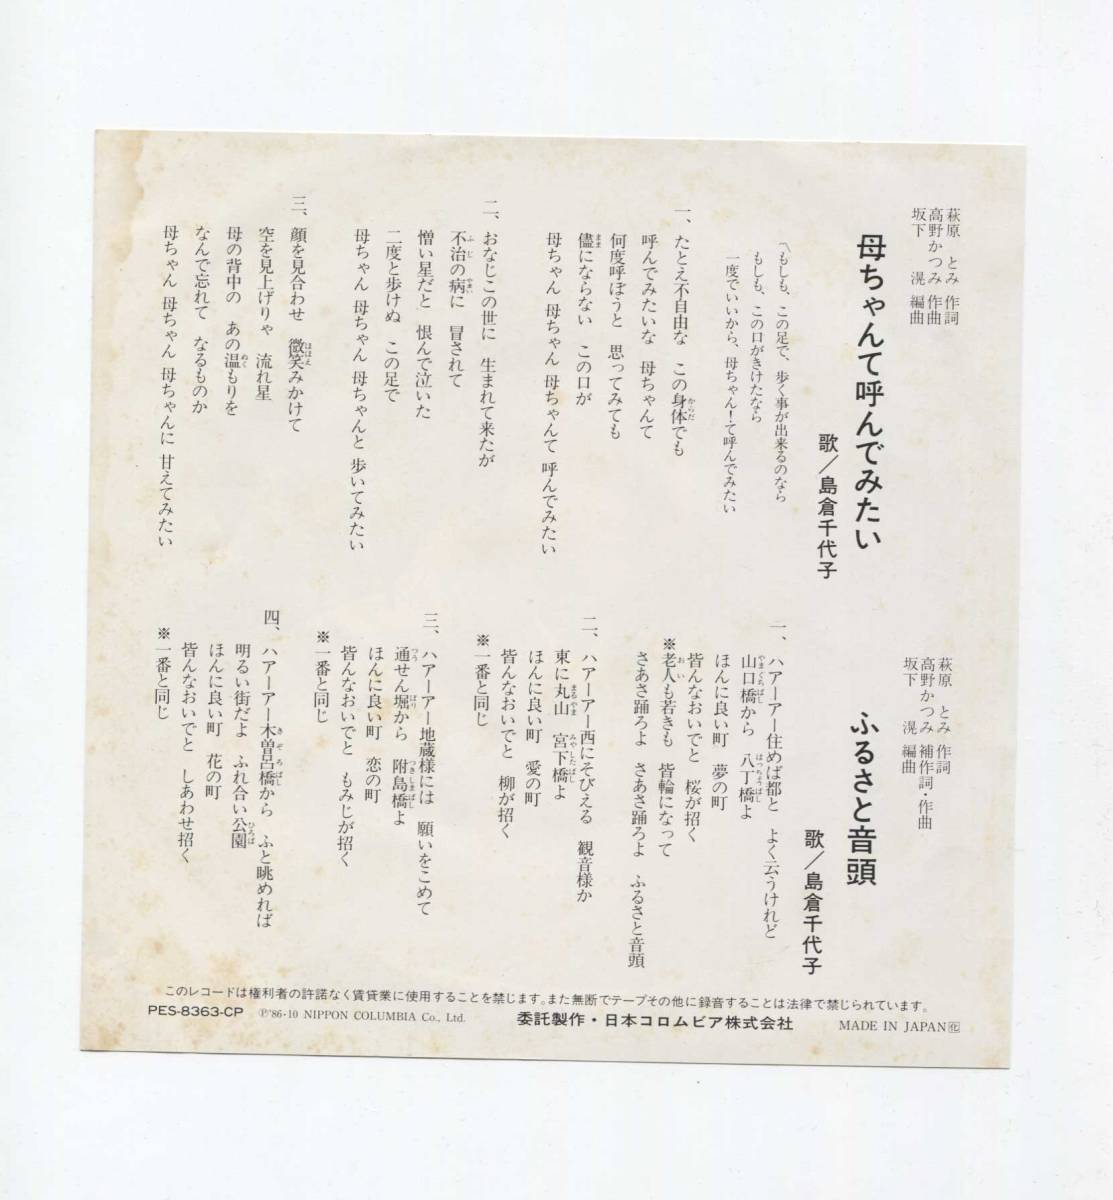 萩原 とみ 作詞
高野かつみ 作曲
坂下 滉 編曲
母ちゃんて呼んでみたい
歌/島倉千代子
もしも、この足で、歩く事が出来るのなら
もしも、この口がきけたなら
一度でいいから、母ちゃん!て呼んでみたい
一、たとえ不自由な この身体でも
呼んでみたいな 母ちゃんて
何度呼ぼうと 思ってみても
儘にならない この口が
母ちゃん 母ちゃん 母ちゃんて 呼んでみたい
二、おなじこの世に 生まれて来たが
不治の病に 冒されて
憎い星だと 恨んで泣いた
二度と歩けぬ この足で
母ちゃん 母ちゃん 母ちゃんと 歩いてみたい
三、顔を見合わせ 微笑みかけて
空を見上げりゃ 流れ星
母の背中の あの温もりを
なんで忘れて なるものか
母ちゃん 母ちゃん 母ちゃんに 甘えてみたい
萩原 とみ 作詞
高野かつみ 補作詞・作曲
坂下 滉 編曲
ふるさと音頭
歌/島倉千代子
一、ハアーアー住めば都と よく云うけれど
山口橋から 八丁橋よ
ほんに良い町 夢の町
皆んなおいでと 桜が招く
※老人も若きも 皆輪になって
さあさ踊ろよ さあさ踊ろよ ふるさと音頭
二、ハアーアー西にそびえる 観音様か
東に丸山 宮下橋よ
ほんに良い町 愛の町
皆んなおいでと 柳が招く
※一番と同じ
三、ハアーアー地蔵様には 願いをこめて
通せん堀から 附島橋よ
ほんに良い町 恋の町
皆んなおいでと もみじが招く
※一番と同じ
四、ハアーアー木曽呂橋から ふと眺めれば
明るい街だよ ふれ合い公園
ほんに良い町 花の町
皆んなおいでと しあわせ招く
※一番と同じ
このレコードは権利者の許諾なく賃貸業に使用することを禁じます。また無断でテープその他に録音することは法律で禁じられています。
PES-8363-CP Ⓟ'86-10 NIPPON COLUMBIA Co., Ltd. 委託製作・日本コロムビア株式会社 MADE IN JAPAN